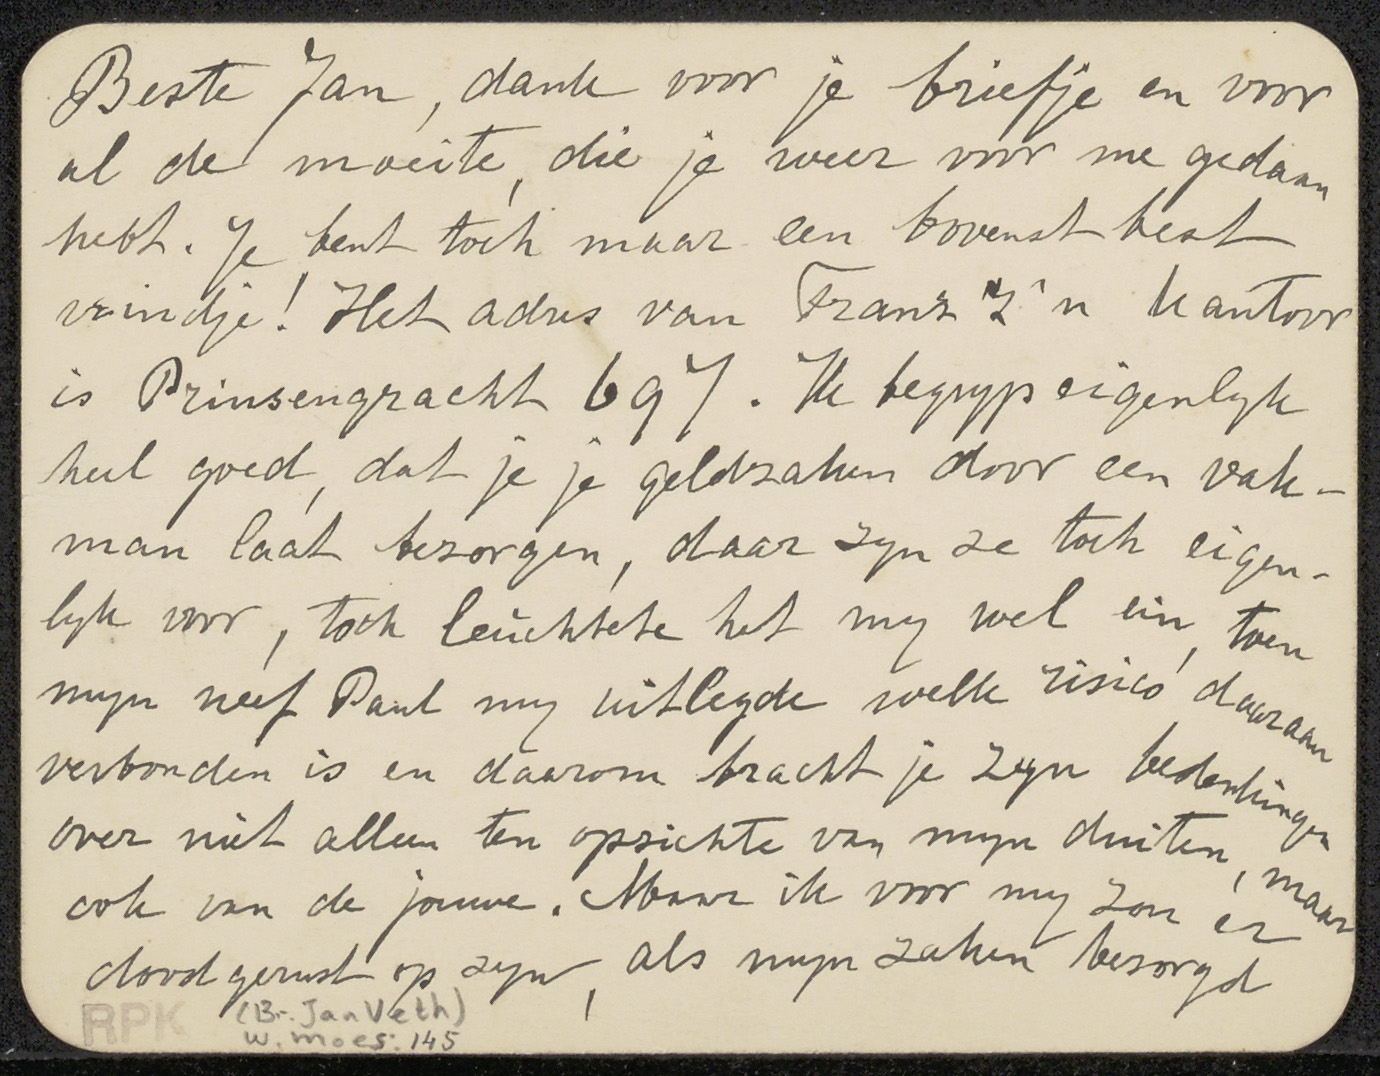 Beste Jan, dank voor je briefje en voor
al de moeite, die je weer voor me gedaan
hebt. Je bent toch maar een bovenst best
vrindje! Het adres van Frans z'n kantoor
is Prinsengracht 697. Ik begryp eigenlyk
heel goed, dat je je geldzaken door een vak-
man laat bezorgen, daar zyn ze toch eigen-
lyk voor, toch leuchtete het my wel ein, toen
myn neef Paul my uitlegde welk risico daaraan
verbonden is en daarom bracht je zyn bedenkingen
over niet alleen ten opzichte van myn duiten, maar
ook van de jouwe. Maar ik voor my zou er
doodgerust op zyn, als myn zaken bezorgd
RPK
(Br. Jan Veth)
W. Moes: 145